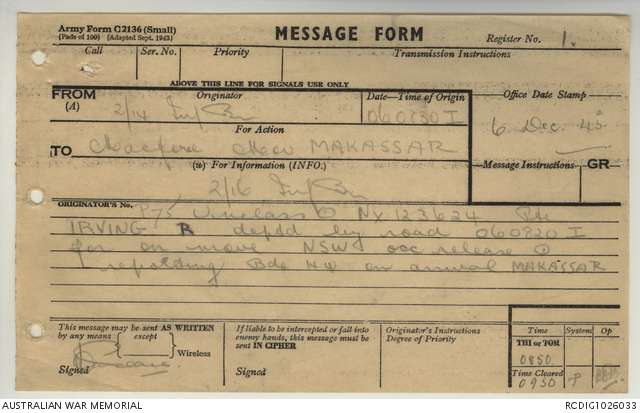 Army Form C2136 (Small)
(Pads of 100) (Adapted Sept. 1943)
MESSAGE FORM
Register No. 1.
Call Ser. No. Priority Transmission Instructions
ABOVE THIS LINE FOR SIGNALS USE ONLY
FROM Originator Date—Time of Origin Office Date Stamp
(A) 2/14 Inf Bn 060830 I
For Action 6 Dec. 45
TO MAKASSAR
(W) For Information (INFO.) Message Instructions GR
2/16 Inf Bn
ORIGINATOR'S No. P75 Unclass NX 123624 Pte
IRVING R deptd by road 060920 I
for on move NSW release
reporting Bde HQ on arrival MAKASSAR
This message may be sent AS WRITTEN
by any means except
Wireless
Signed
If liable to be intercepted or fall into
enemy hands, this message must be
sent IN CIPHER
Signed
Originator's Instructions
Degree of Priority
Time System Op
THI or TOR
0850
Time Cleared
0950
AUSTRALIAN WAR MEMORIAL RCDIG1026033